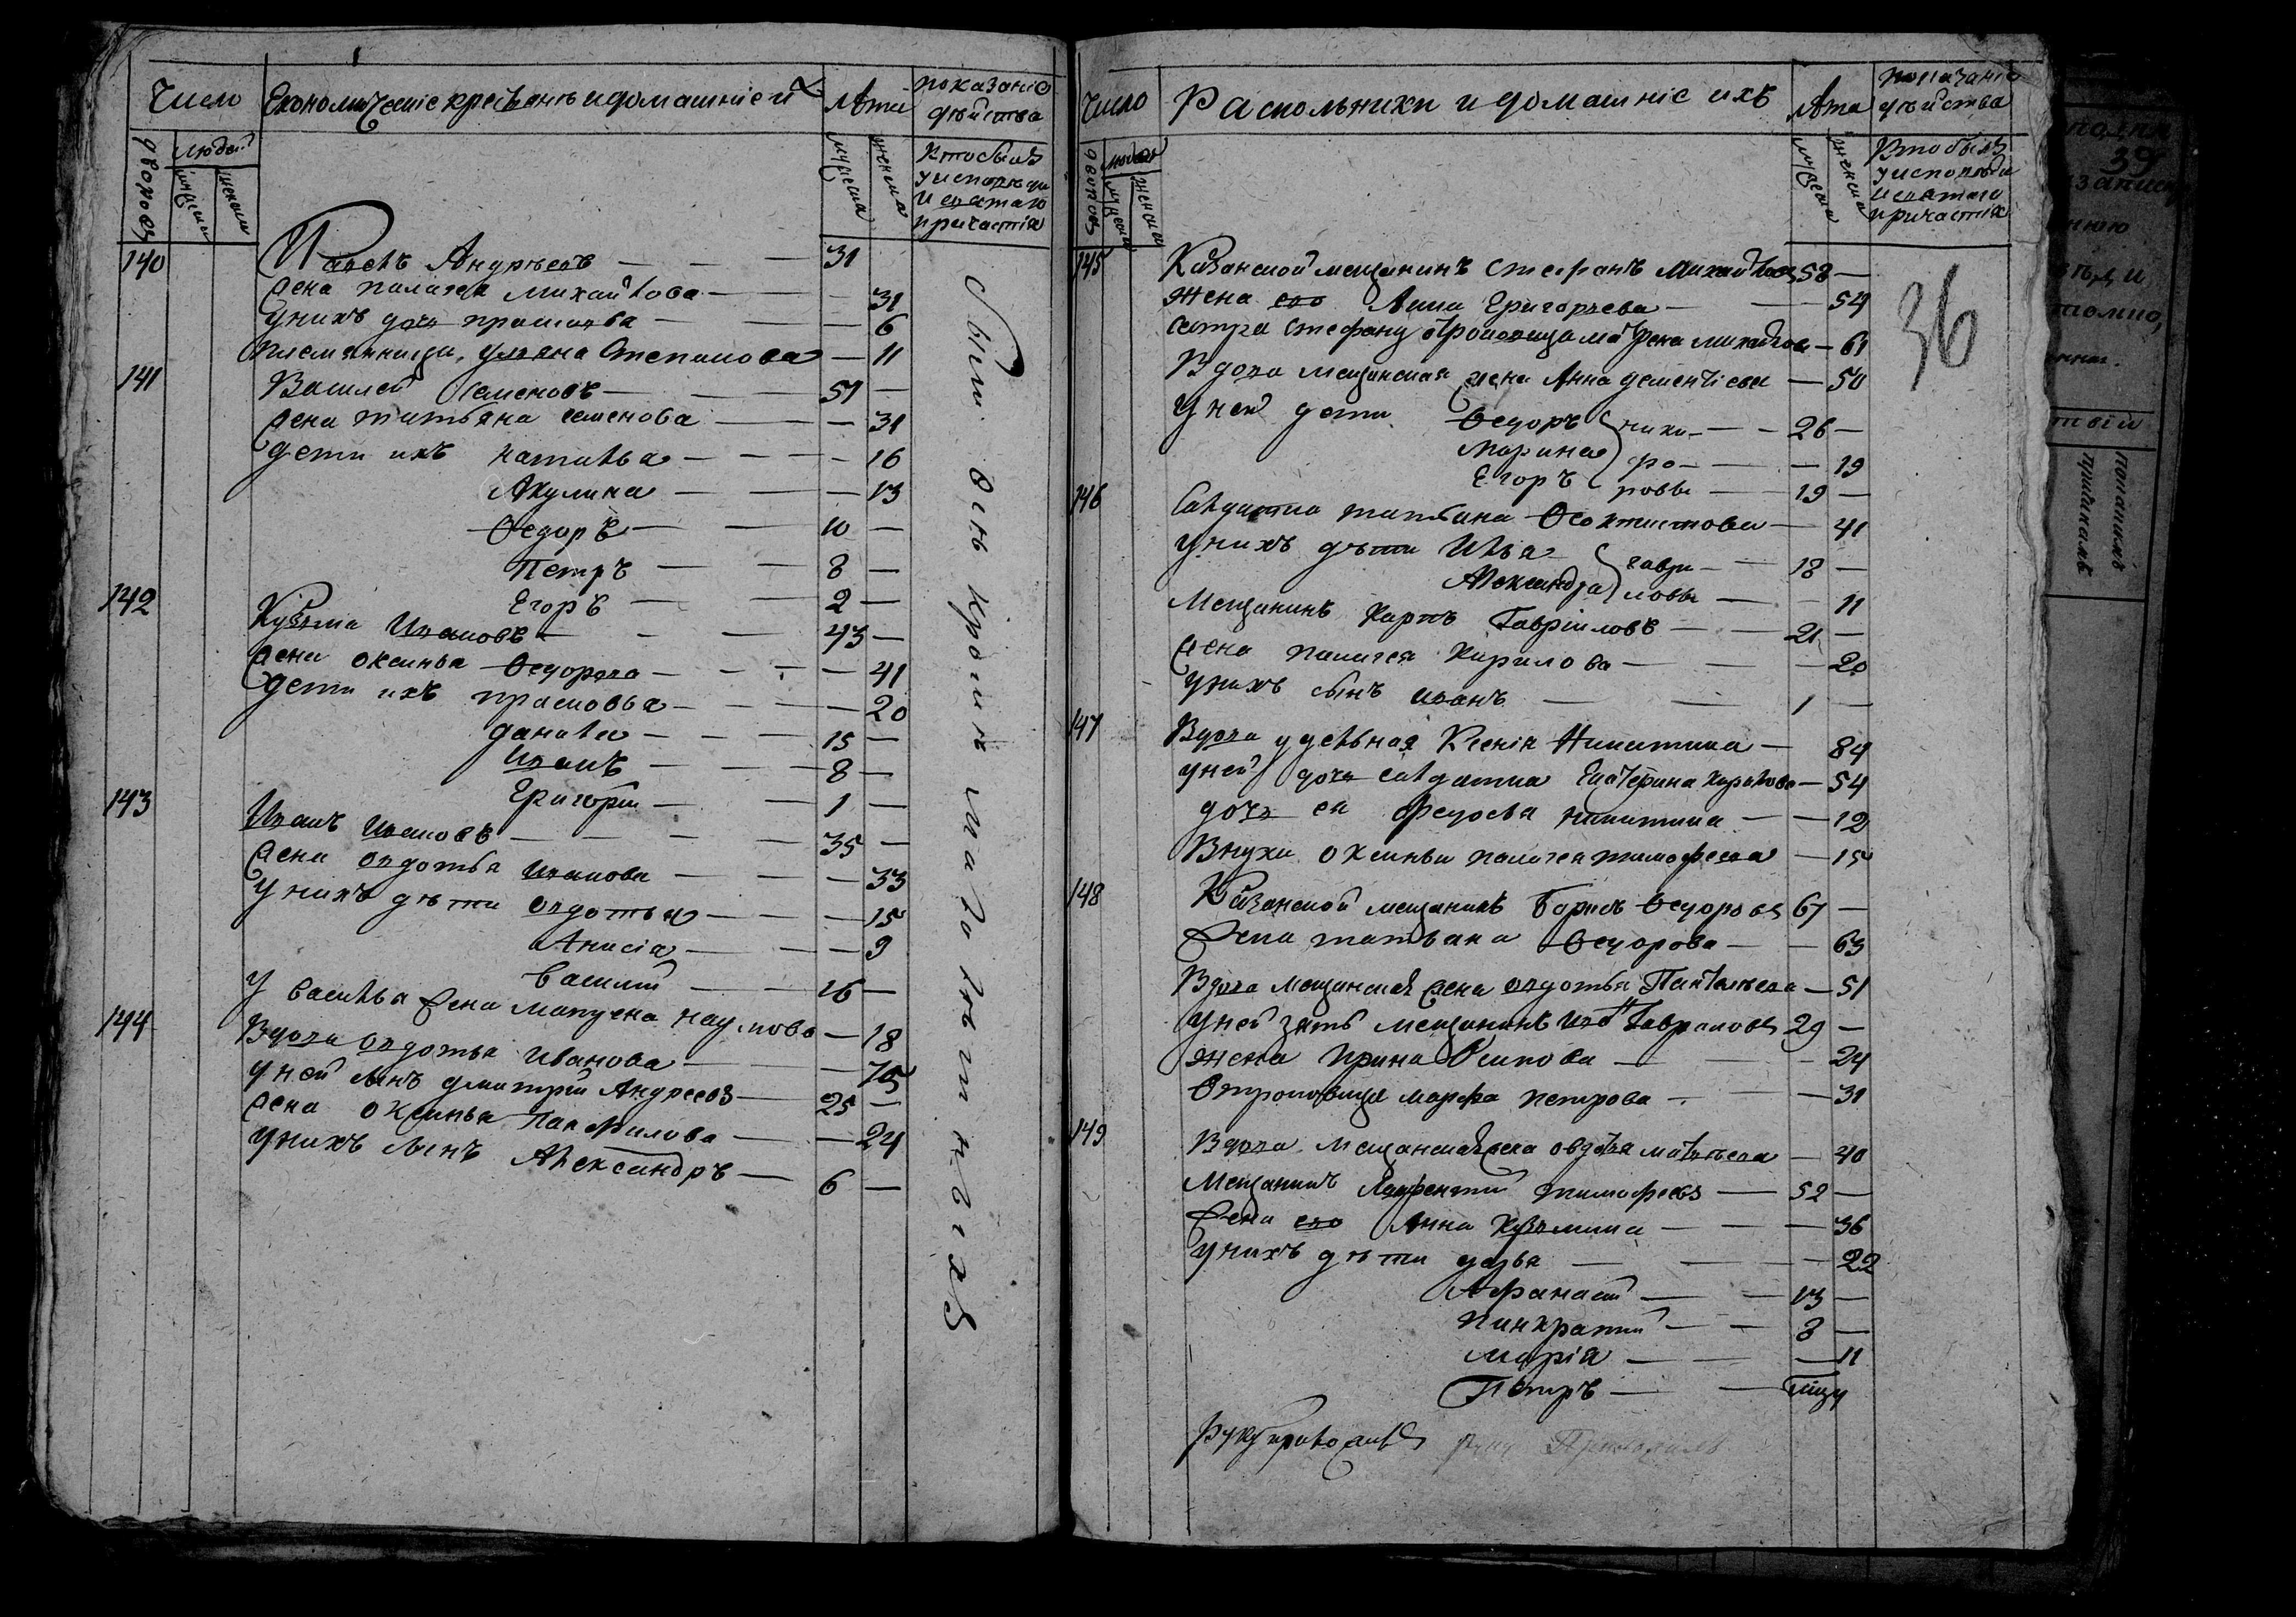 Число Економическіе крестьянъ и домашніе их Лѣта показаніе дѣйства
дворовъ людей мужеска женска мужеска женска Кто былъ у исповѣди и святаго причастія
140 Павелъ Андреевъ — 31
жена палагея михайлова — 31
у нихъ дочь прасковья — 6
племянница ульяна Степанова — 11
141 Василей Семеновъ — 51 —
жена татьяна семенова — 31
дети ихъ наталья — 16
Акулина — 13
Ѳедоръ — 10 —
Петръ — 8 —
Егоръ — 2 —
142 Кузьма Ивановъ — 43 —
жена оксинья Ѳедорова — 41
дети ихъ прасковья — 20
данила — 15 —
Иванъ — 8 —
Григорій — 1 —
143 Иванъ Ивановъ — 35 —
жена авдотья Иванова — 33
у нихъ дѣти авдотья — 15
Анисія — 9
Василій — 16 —
у Василья жена матрена наумова — 18
144 Вдова авдотья Иванова — 75
у ней сынъ дмитрій Андреевъ — 25 —
жена оксинья Панфилова — 24
у нихъ сынъ Александръ — 6 —
были всѣ кромѣ малолѣтнихъ
Число Раскольники и домашніе ихъ Лѣта показаніе дѣйства
дворовъ людей мужеска женска мужеска женска Кто былъ у исповѣди и святаго причастія
36
145 Казанской мещанинъ Стефанъ Михайловъ 58 —
жена его Анна Григорьева — 54
сестра Стефану отроковица матрена михайлова — 61
Вдова мещанская жена Анна дементіева — 50
у ней дети Ѳедоръ нико — 26 —
Марина фо — 19
Егоръ ровы — 19 —
146 Салдатка татьяна Ѳеоктистова — 41
у нихъ дѣти Илья гаври — 18 —
Александра ловы — 11
Мещанинъ Карпъ Гавріиловъ — 21 —
жена палагея Кирилова — 20
у нихъ сынъ иванъ — 1 —
147 Вдова удельная Ксенія Никитина — 84
у ней дочь салдатка Екатерина — 54
дочь ея федосья никитина — 12
Внука оксиньи палагея тимофеева — 15
148 Казанской мещанинъ Борисъ Ѳедоровъ 67 —
жена татьяна Ѳедорова — 63
Вдова мещанская жена авдотья Пантелѣева — 51
у ней зять мещанинъ Гавриловъ 29 —
жена Ирина Осипова — 24
Отроковица марфа петрова — 31
149 Вдова мещанская жена авдотья матвѣева — 40
Мещанинъ Лаврентій тимофеевъ — 52 —
жена его Анна Кузьмина — 36
у нихъ дѣти дарья — 22
Афанасій — 13 —
панкратій — 8 —
марія — 11
Петръ —
39